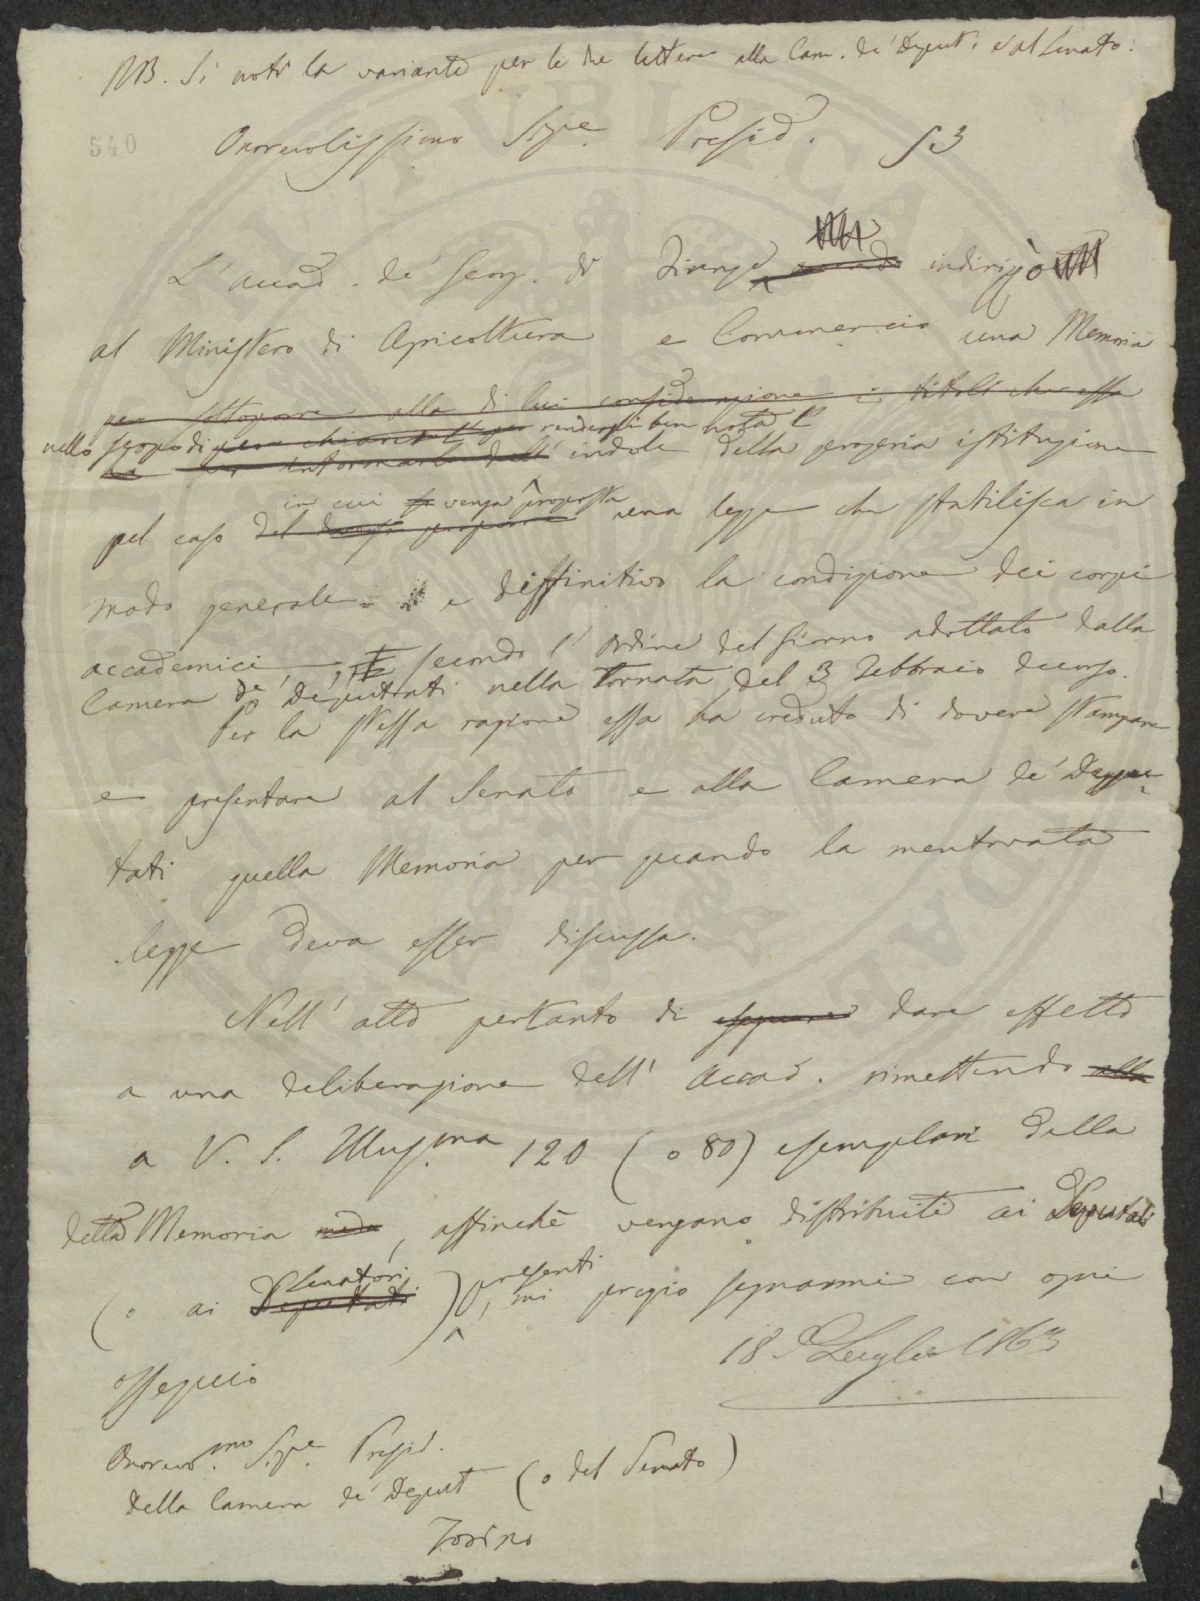 NB. Si noti la variante per le due lettere alla Cam. de' Deput. e al Senato.
540
Onorevolissimo Sige. Presid. 53
L'Accad. de' Georg. di Firenze avendo indirizzò
al Ministero di Agricoltura e Commercio una Memoria
per sottoporre alla di lui considerazione i titoli che essa
nello scopo di rendergli ben nota l'
ha per informarlo dell' indole della propria istituzione
in cui si venga proposta
pel caso del una legge che stabilisca in
modo generale e diffinitivo la condizione dei corpi
accademici, secondo l'ordine del giorno adottato dalla
Camera de' Deputati nella tornata del 3 Febbraio decorso.
Per la stessa ragione essa ha creduto di dovere stampare
e presentare al Senato e alla Camera de' Depu-
tati quella Memoria per quando la mentovata
legge deva esser discussa.
Nell' atto pertanto di eseguire dare effetto
a una deliberazione dell' Accad. rimettendo alla
a V. S. Illus.ma 120 (o 80) esemplari della
detta Memoria, affinchè vengano distribuiti ai Deputati
Senatori presenti
(o ai Deputati), mi pregio segnarmi con ogni
18 Luglio 1863
ossequio
Onorevo.mo Sige. Presid.
della Camera de' Deput (o del Senato)
Torino